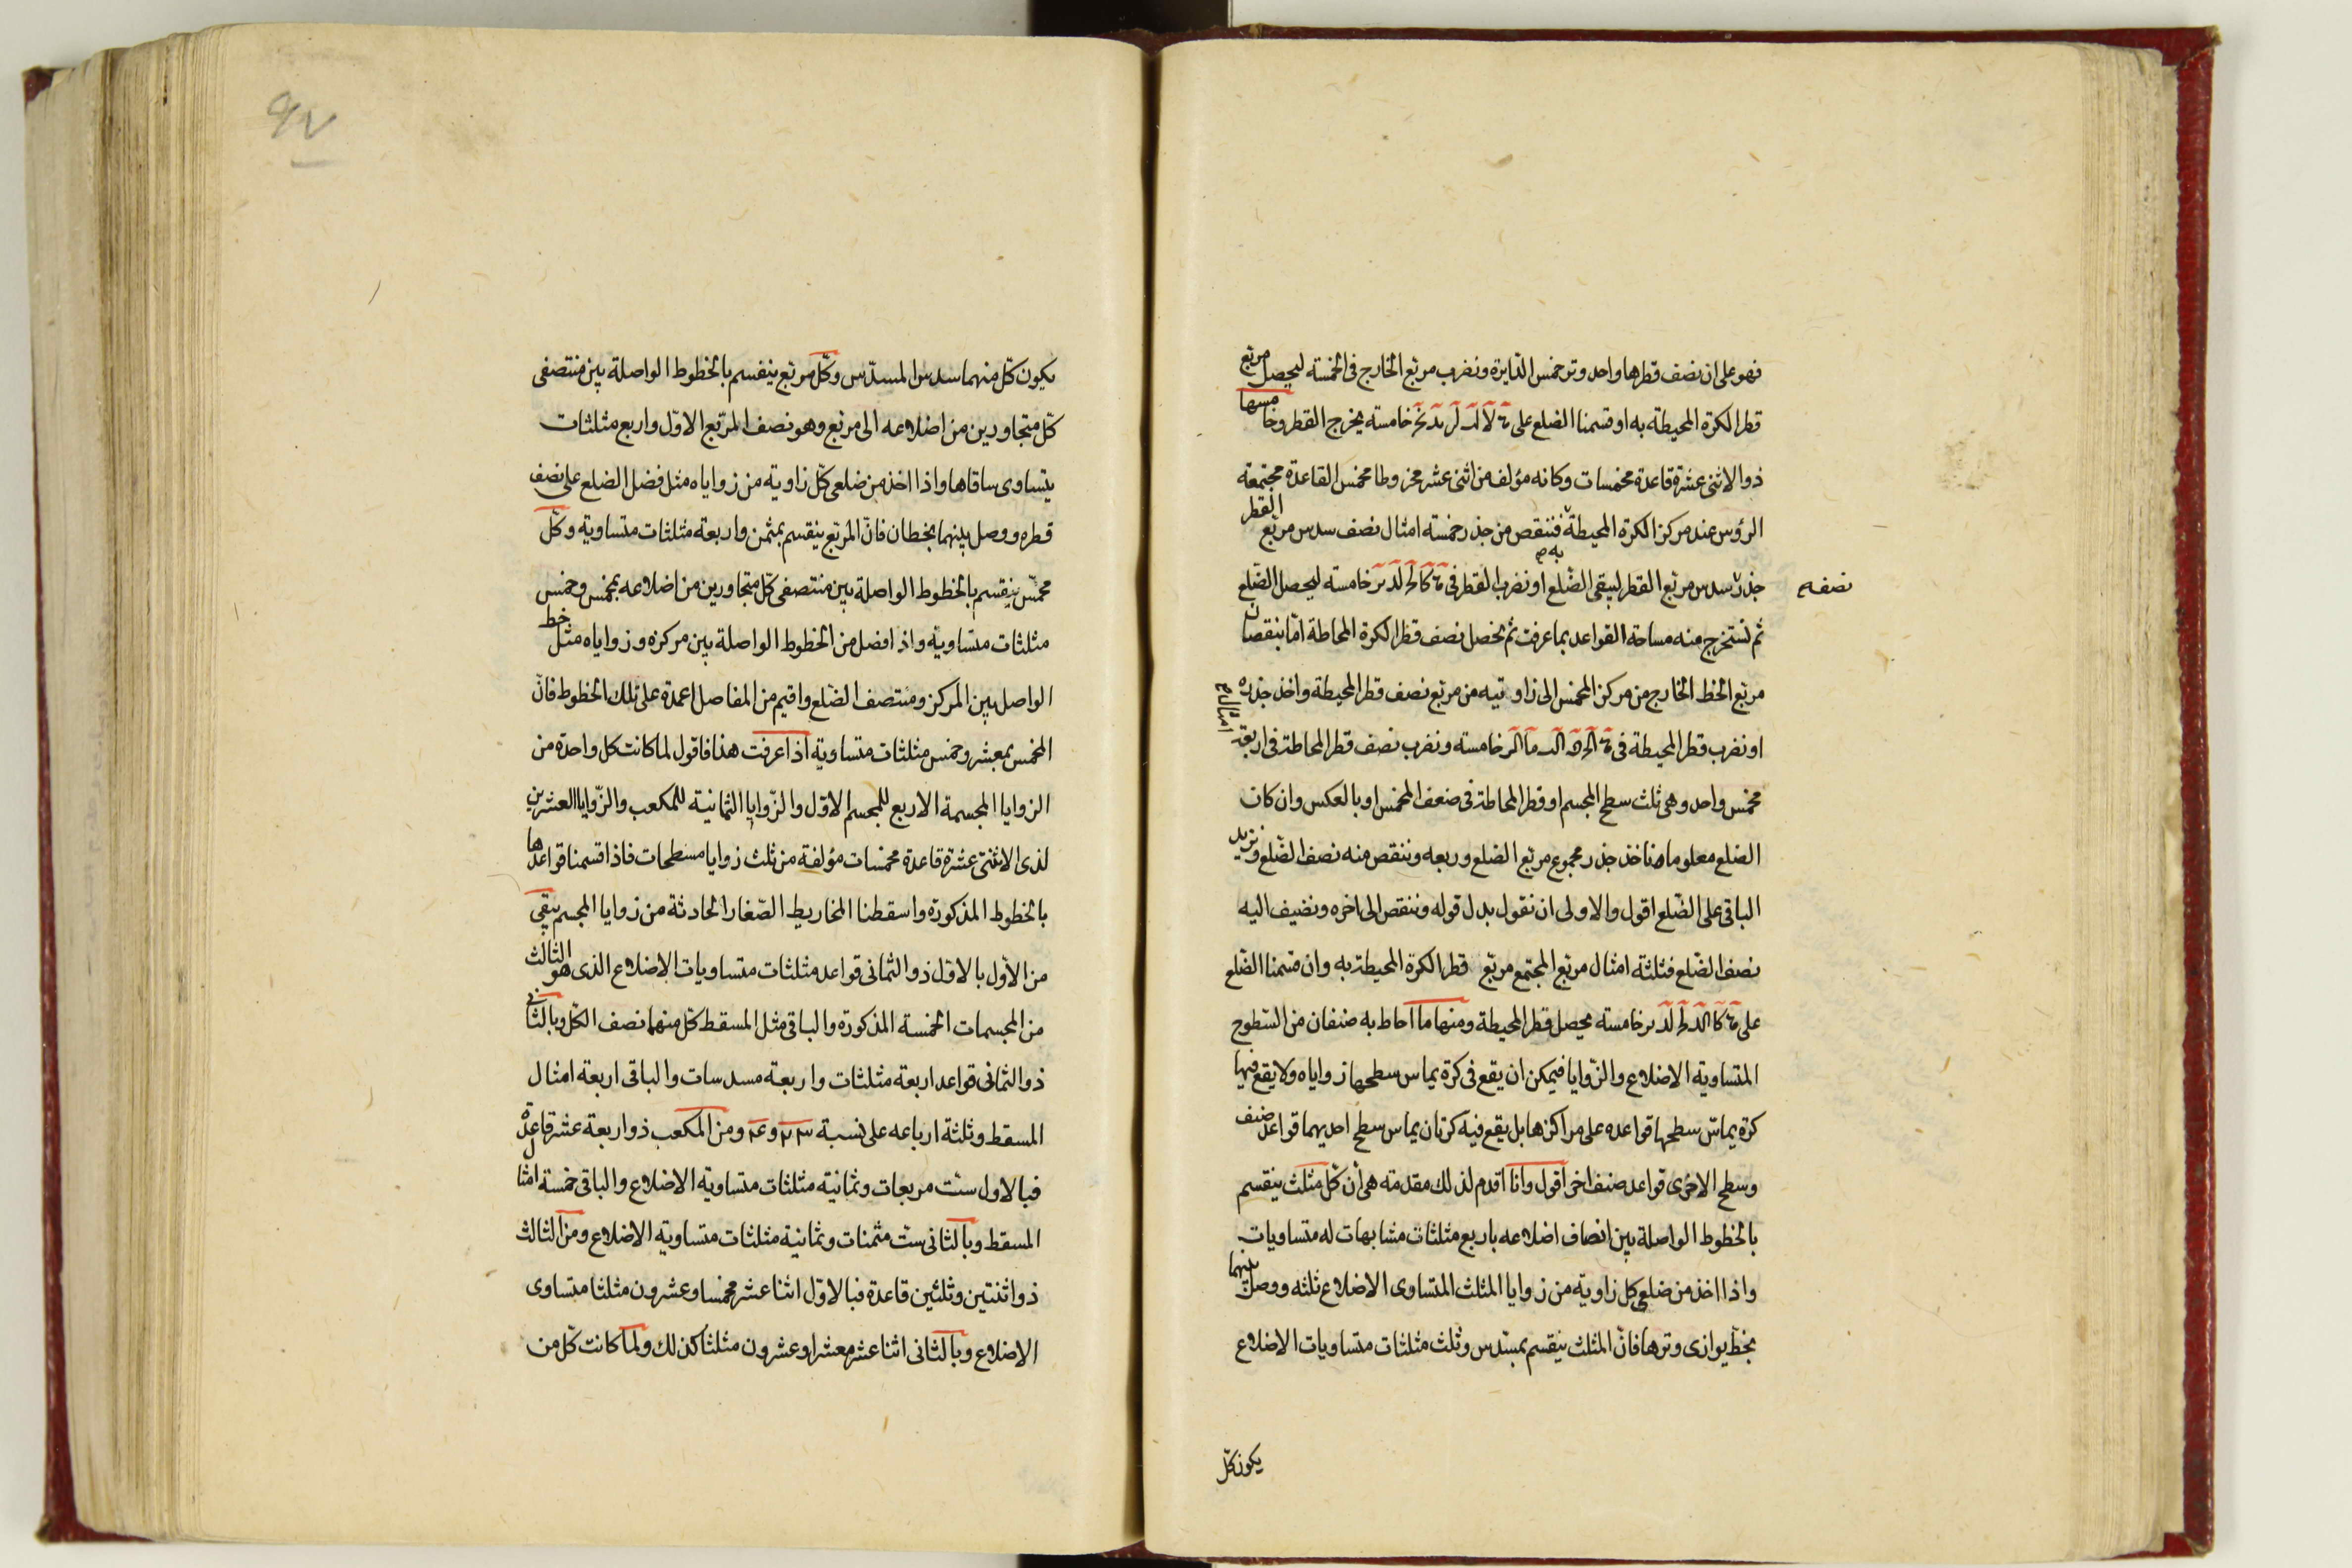 فهو على ان نصف قطرها واحد وتر خمس الدايرة ونضرب مربع الخارج فى الخمسة ليحصل مربع
قطر الكرة المحيطة به او قسمنا الضلع على خامسته يخرج القطر وخامسها
ذو الاثنى عشرة قاعدة مخمسات وكانه مؤلف من اثنى عشر مخروطا مخمس القاعدة مجتمعة
الرؤس عند مركز الكرة المحيطة فننقص من جذر خمسة امثال نصف سدس مربع القطر
جذر سدس مربع القطر ليبقى الضلع او نضرب القطر فى خامسته ليحصل الضلع
نصفه
به
ثم نستخرج منه مساحة القواعد بما عرفت ثم نحصل نصف قطر الكرة المحاطة اما بنقصان
مربع الخط الخارج من مركز المخمس الى زاويتيه من مربع نصف قطر المحيطة واخذ جذره
او نضرب قطر المحيطة فى خامسته ونضرب نصف قطر المحاطة فى اربعة امثال
مخمس واحد وهى ثلث سطح المجسم او قطر المحاطة فى ضعف المخمس او بالعكس وان كان
الضلع معلوما فناخذ جذر مجموع مربع الضلع وربعه وننقص منه نصف الضلع ونزيد
الباقى على الضلع اقول والاولى ان نقول بدل قوله وننقص الى اخره ونضيف اليه
نصف الضلع فثلثة امثال مربع المجتمع مربع قطر الكرة المحيطة به وان قسمنا الضلع
على خامسته يحصل قطر المحيطة ومنها ما احاط به صنفان من السطوح
المتساوية الاضلاع والزوايا فيمكن ان يقع فى كرة يماس سطحها زواياه ولا يقع فيها
كرة يماس سطحها قواعده على مراكزها بل يقع فيه كرتان يماس سطح احديهما قواعد صنف
وسطح الاخرى قواعد صنف اخر اقول وانا اقدم لذلك مقدمة هى ان كل مثلث ينقسم
بالخطوط الواصلة بين انصاف اضلاعه باربع مثلثات مشابهات له متساويات
واذا اخذ من ضلعى كل زاوية من زوايا المثلث المتساوى الاضلاع ثلثه ووصل بينهما
بخط يوازى وترها فان المثلث ينقسم بمسدس وثلث مثلثات متساويات الاضلاع
يكون كل
٩٧
يكون كل منهما سدس المسدس وكل مربع ينقسم بالخطوط الواصلة بين منتصفى
كل متجاورين من اضلاعه الى مربع وهو نصف المربع الاول واربع مثلثات
يتساوى ساقاها واذا اخذ من ضلعى كل زاوية من زواياه مثل فضل الضلع على نصف
قطره ووصل بينهما بخطان فان المربع ينقسم بمثمن واربعة مثلثات متساوية وكل
مخمس ينقسم بالخطوط الواصلة بين منتصفى كل متجاورين من اضلاعه بمخمس وخمس
مثلثات متساوية واذا فصل من الخطوط الواصلة بين مركزه وزواياه مثل خط
الواصل بين المركز ومنتصف الضلع واقيم من المفاصل اعمدة على تلك الخطوط فان
المخمس بمعشر وخمس مثلثات متساوية اذا عرفت هذا فاقول لما كانت كل واحدة من
الزوايا المجسمة الاربع للمجسم الاول والزوايا الثمانية للمكعب والزوايا العشرين
لذى الاثنتى عشرة قاعدة مخمسات مؤلفة من ثلث زوايا مسطحات فاذا قسمنا قواعدها
بالخطوط المذكورة واسقطنا المخاريط الصغار الحادثة من زوايا المجسم يبقى
من الاول بالاول ذو الثمانى قواعد مثلثات متساويات الاضلاع الذى هو الثالث
من المجسمات الخمسة المذكورة والباقى مثل المسقط كل منهما نصف الكل وبالثانى
ذو الثمانى قواعد اربعة مثلثات واربعة مسدسات والباقى اربعة امثال
المسقط وثلثة ارباعه على نسبة ٢٣ و ٤ ومن المكعب ذو اربعة عشر قاعدة
فبالاول ست مربعات وثمانية مثلثات متساوية الاضلاع والباقى خمسة امثال
المسقط وبالثانى ست مثمنات وثمانية مثلثات متساوية الاضلاع ومن الثالث
ذو اثنتين وثلثين قاعدة فبالاول اثنا عشر مخمسا وعشرون مثلثا متساوى
الاضلاع وبالثانى اثنا عشر معشرا وعشرون مثلثا كذلك ولما كانت كل من